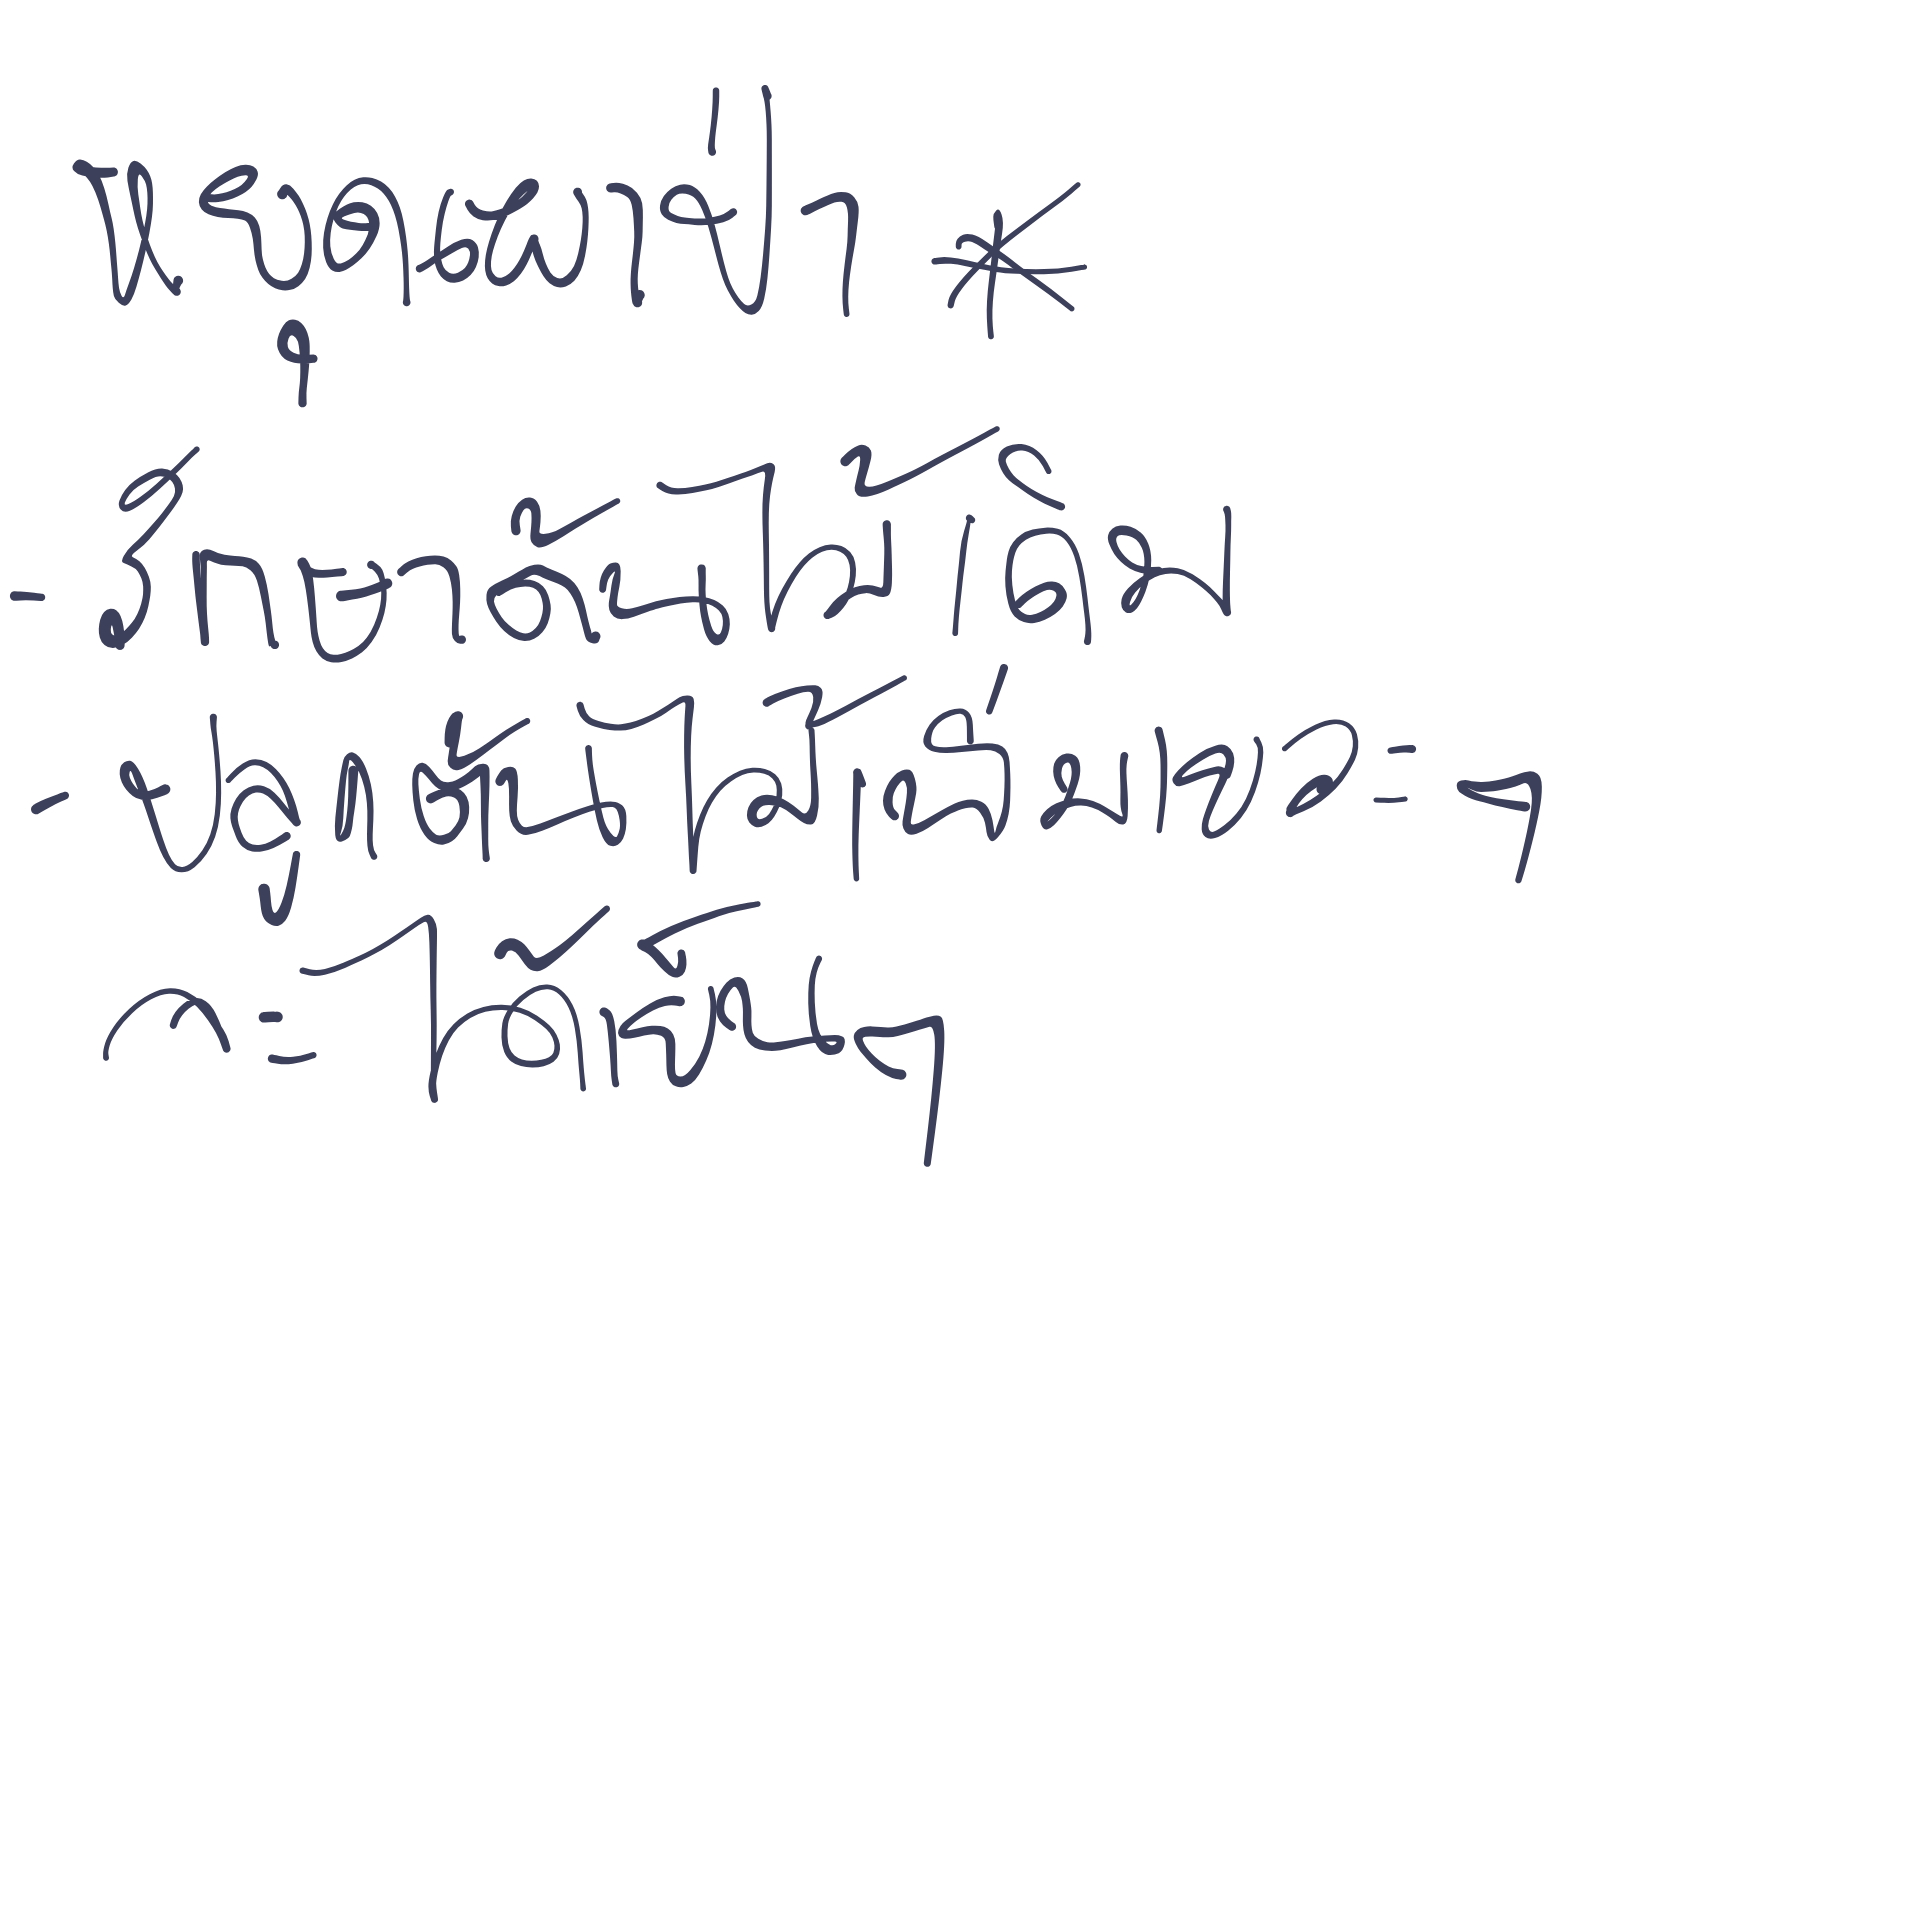 หยุดเผาป่า *
- รักษาต้นไม้เดิม
- ปลูกต้นไม้ร่มเยอะๆ
จะได้เย็นๆ